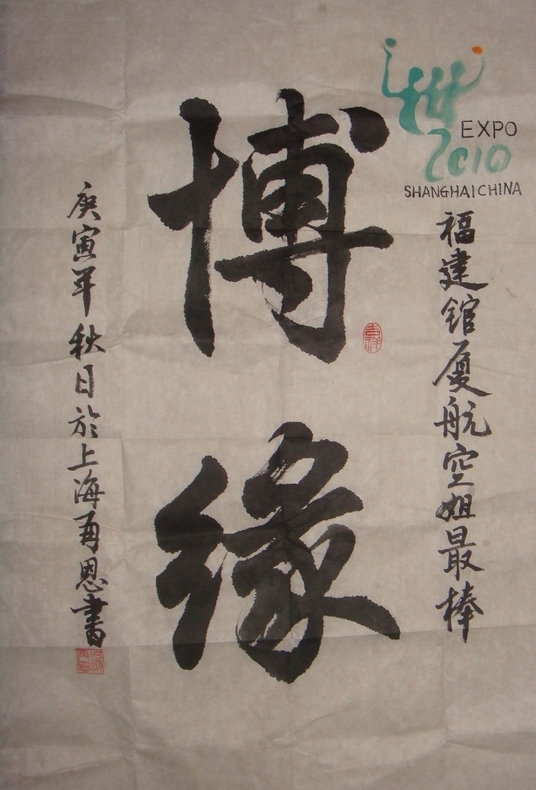 世
EXPO
2010
SHANGHAI CHINA
福建馆厦航空姐最棒
博缘
庚寅年秋日於上海
恩書